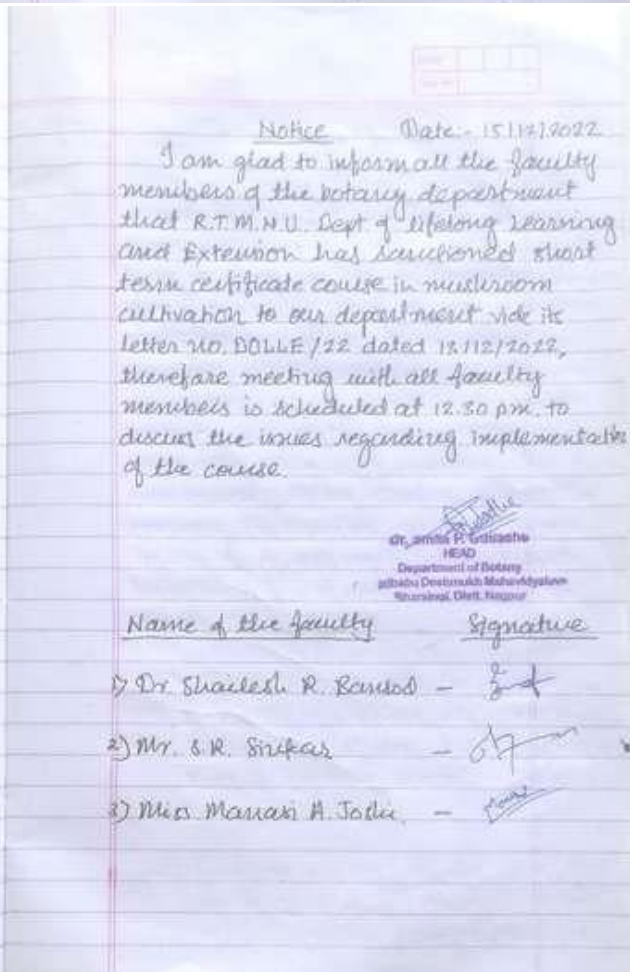 Notice Date:- 15/12/2022
I am glad to inform all the faculty
members of the botany department
that R.T.M.N.U. Dept of Lifelong Learning
and Extension has sanctioned short
term certificate course in mushroom
cultivation to our department vide its
letter no. DOLLE/22 dated 13/12/2022,
therefore meeting with all faculty
members is scheduled at 12.30 pm. to
discuss the issues regarding implementation
of the course.
HEAD
Department of Botany
Deshmukh Mahavidyalaya
Bharsingi, Distt. Nagpur
Name of the faculty Signature
1) Dr. Shailesh R. Bansod -
2) Mr. S.R. -
3) Miss. Manasi A. Joshi. -